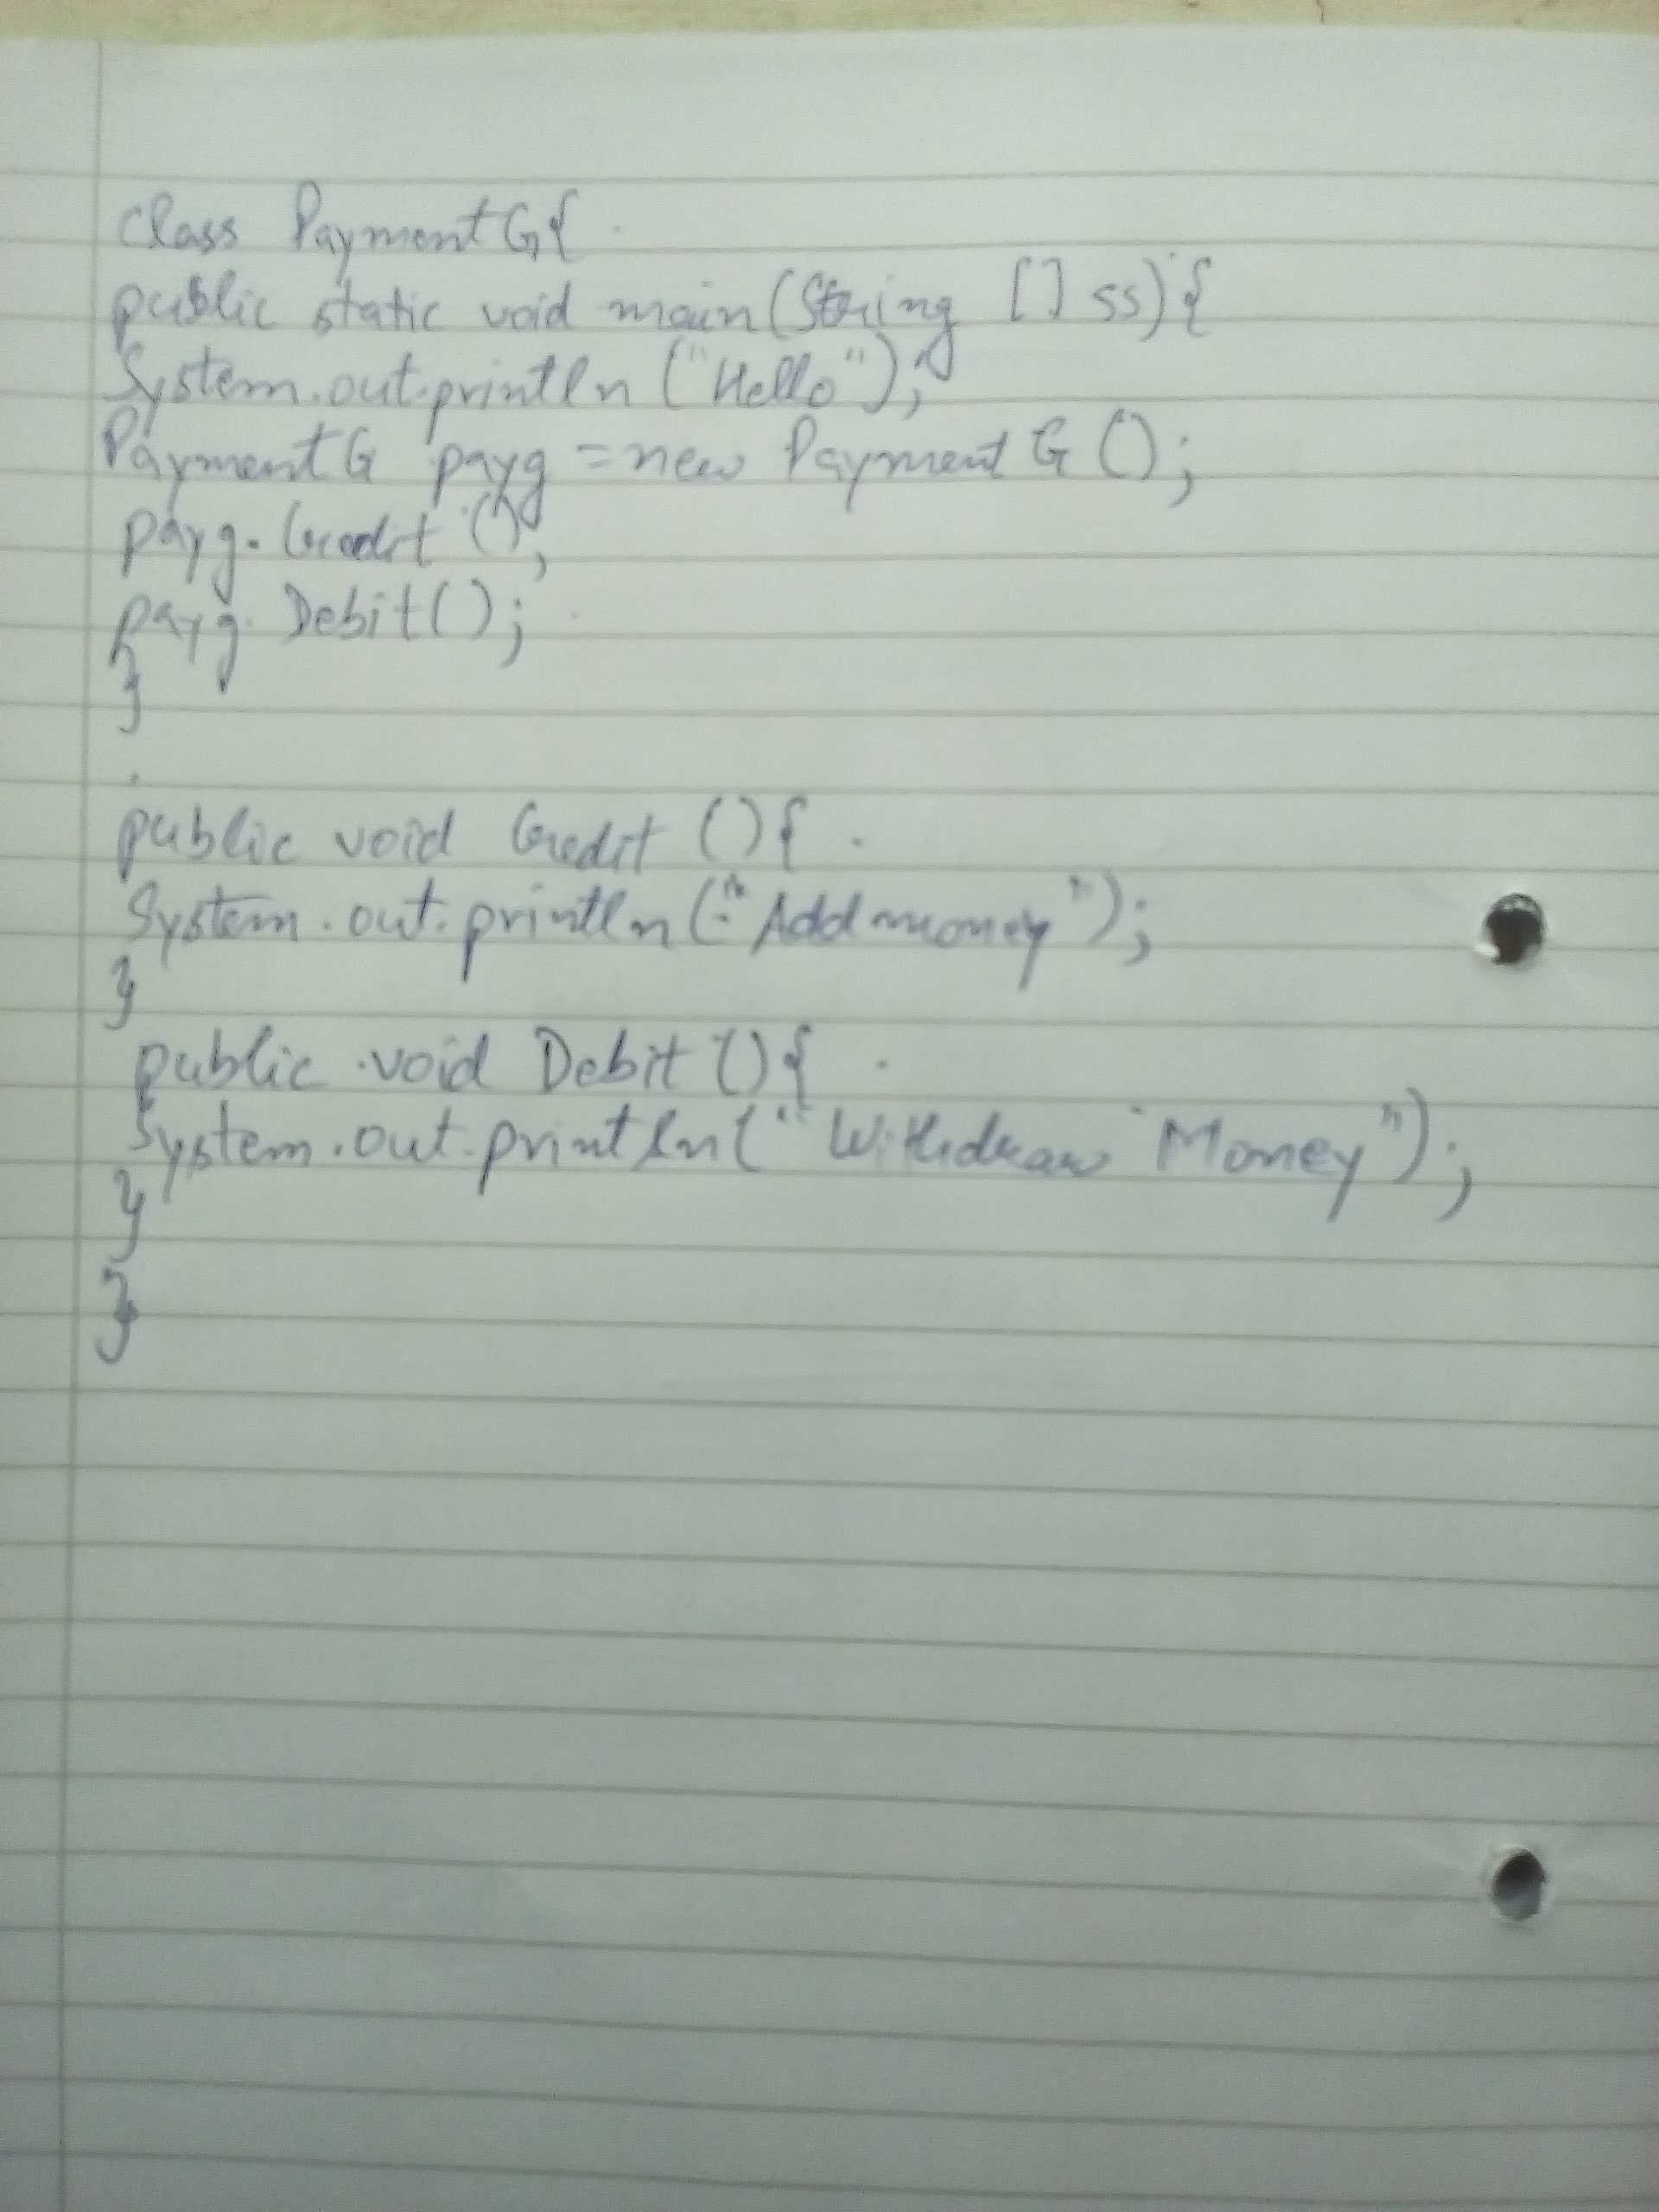 class PaymentG{
public static void main(String [] ss){
System.out.println("Hello");
PaymentG payg = new PaymentG();
payg.Credit();
payg.Debit();
}
public void Credit(){
System.out.println("Add money");
}
public void Debit(){
System.out.println("Withdraw Money");
}
}